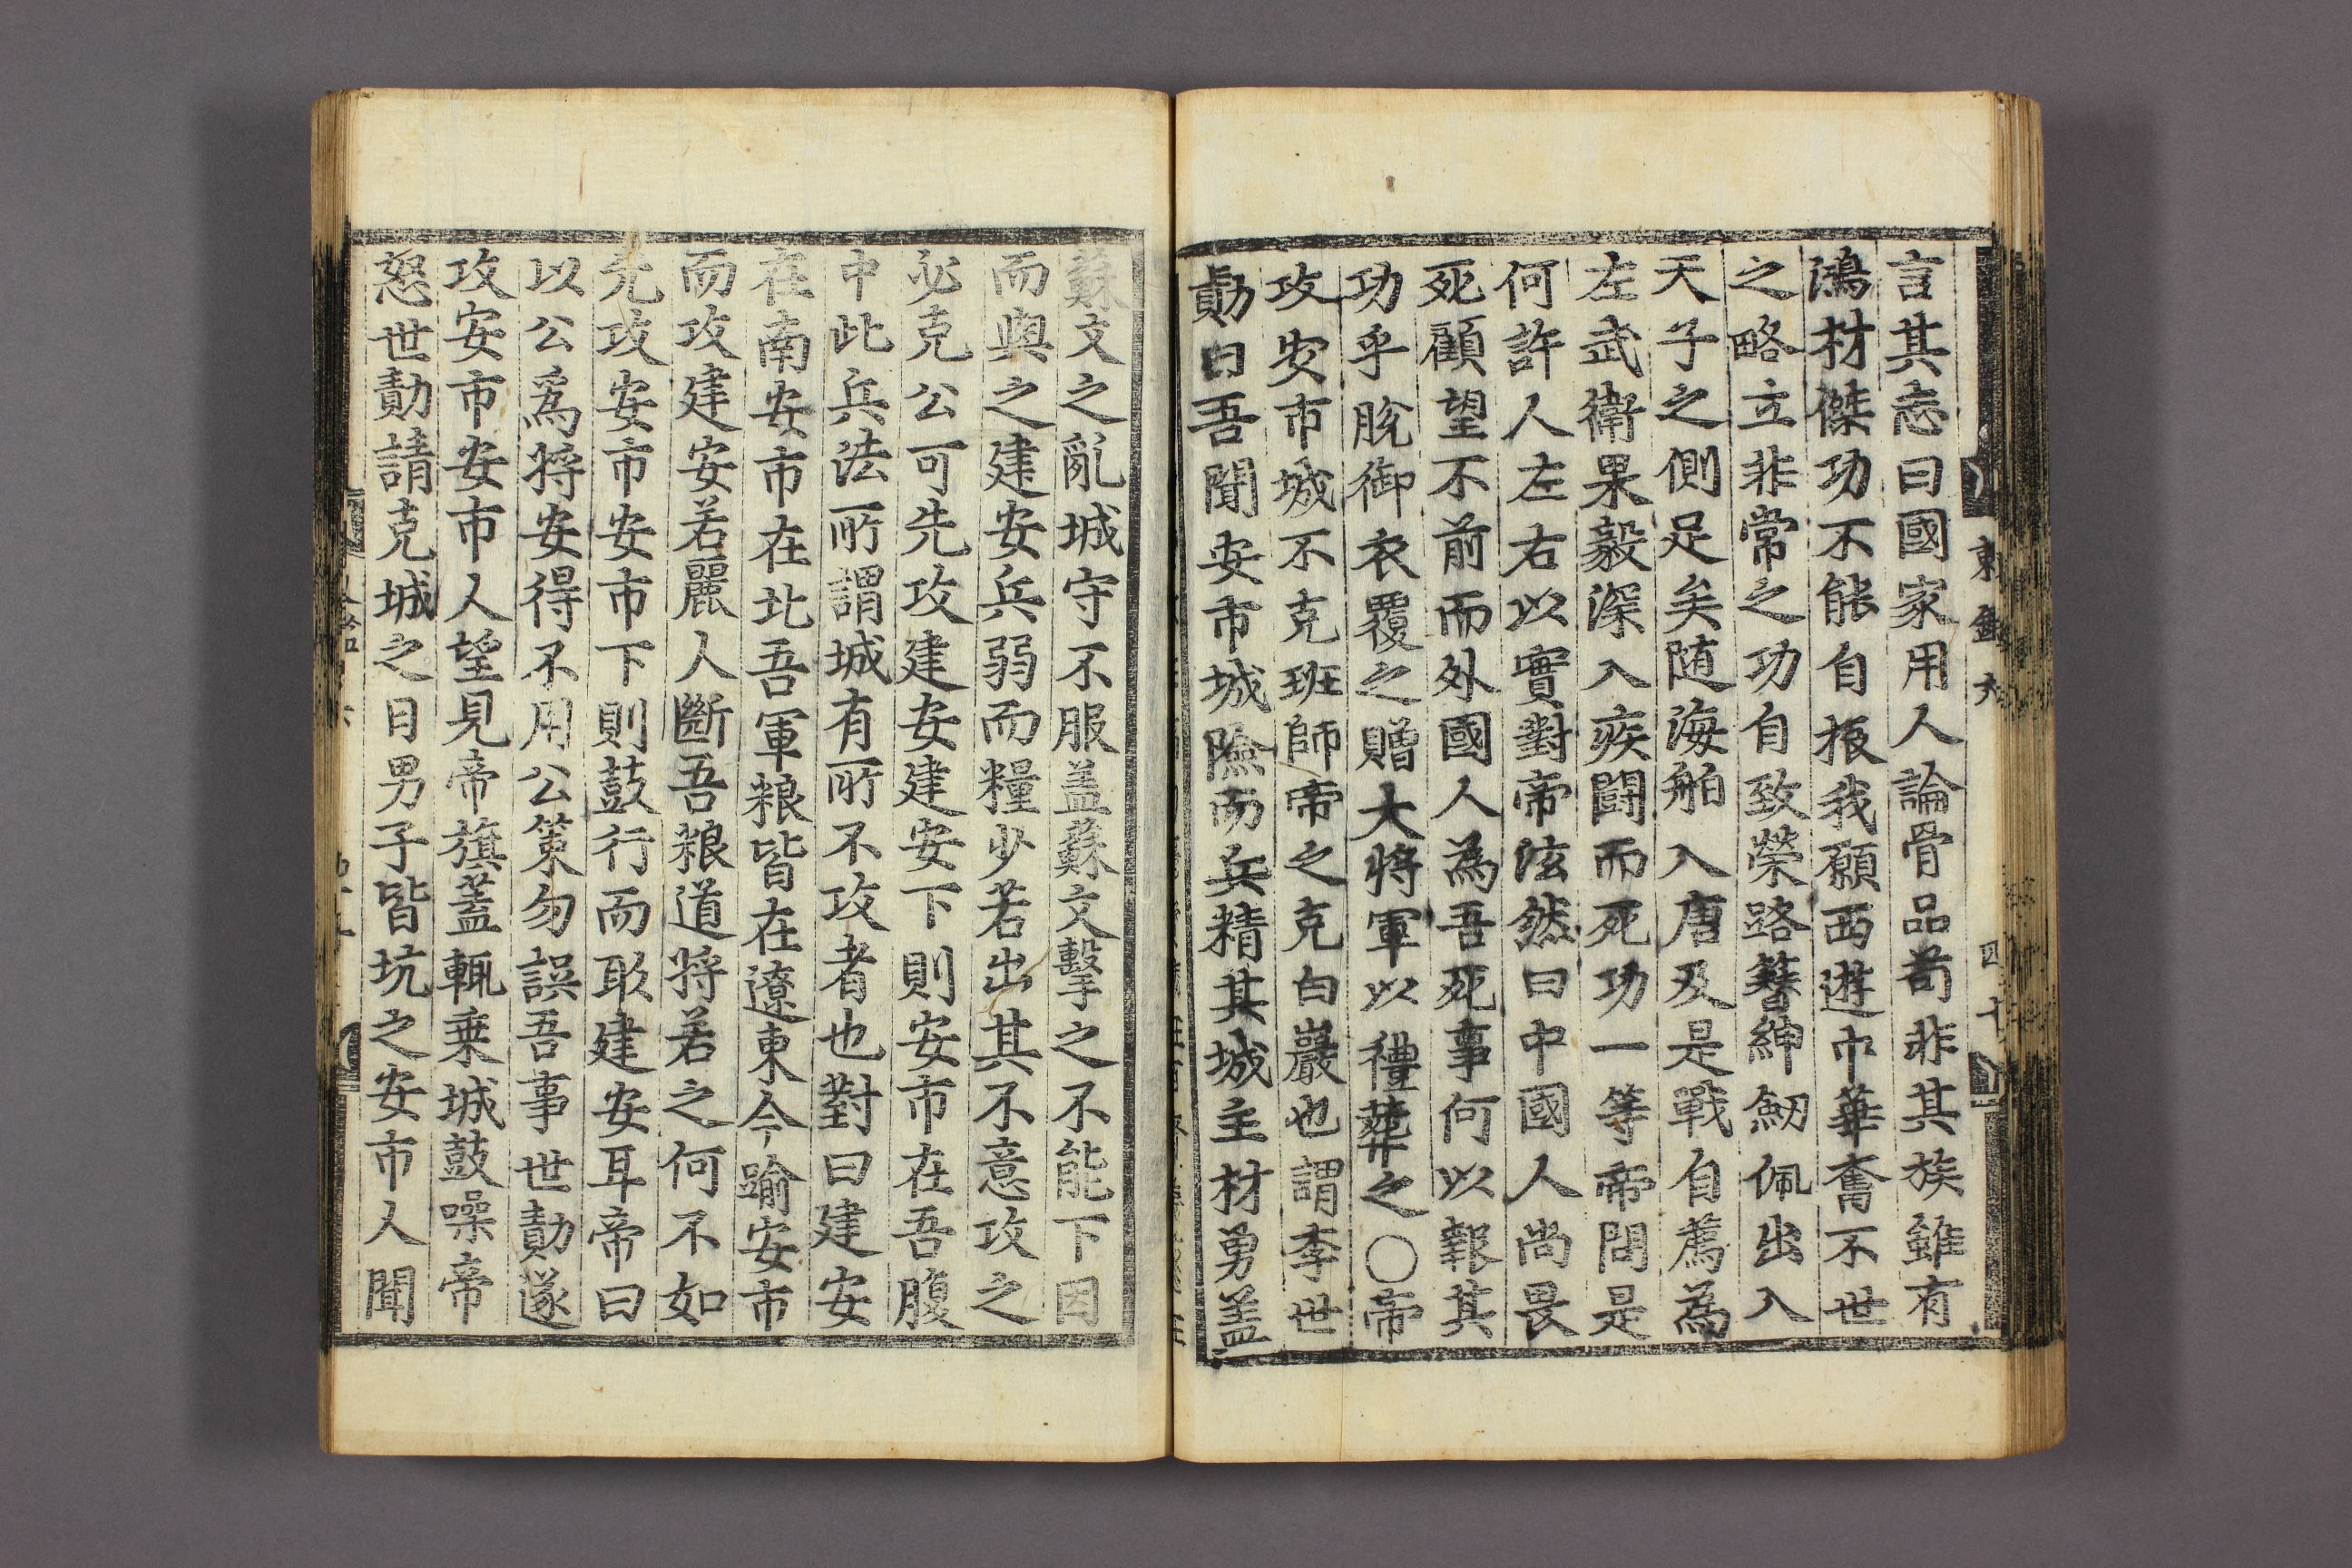 言其志曰國家用人論骨品苟非其族雖有
鴻材傑功不能自振我願西遊中華奮不世
之略立非常之功自致榮路簪紳劒佩出入
天子之側足矣随海舶入唐及是戰自薦為
左武衛果毅深入疾鬪而死功一等帝問是
何許人左右以實對帝泫然曰中國人尚畏
死顧望不前而外國人為吾死事何以報其
功乎脫御衣覆之贈大將軍以禮葬之〇帝
攻安市城不克班師帝之克白巖也謂李世
勣曰吾聞安市城險而兵精其城主材勇盖
蘇文之亂城守不服盖蘇文擊之不能下因
而與之建安兵弱而糧少若出其不意攻之
必克公可先攻建安建安下則安市在吾腹
中此兵法所謂城有所不攻者也對曰建安
在南安市在北吾軍粮皆在遼東今踰安市
而攻建安若麗人斷吾粮道將若之何不如
先攻安市安市下則鼓行而取建安耳帝曰
以公爲將安得不用公策勿誤吾事世勣遂
攻安市安市人望見帝旗蓋輒乗城鼓噪帝
怒世勣請克城之日男子皆坑之安市人聞
東鑑六
四十